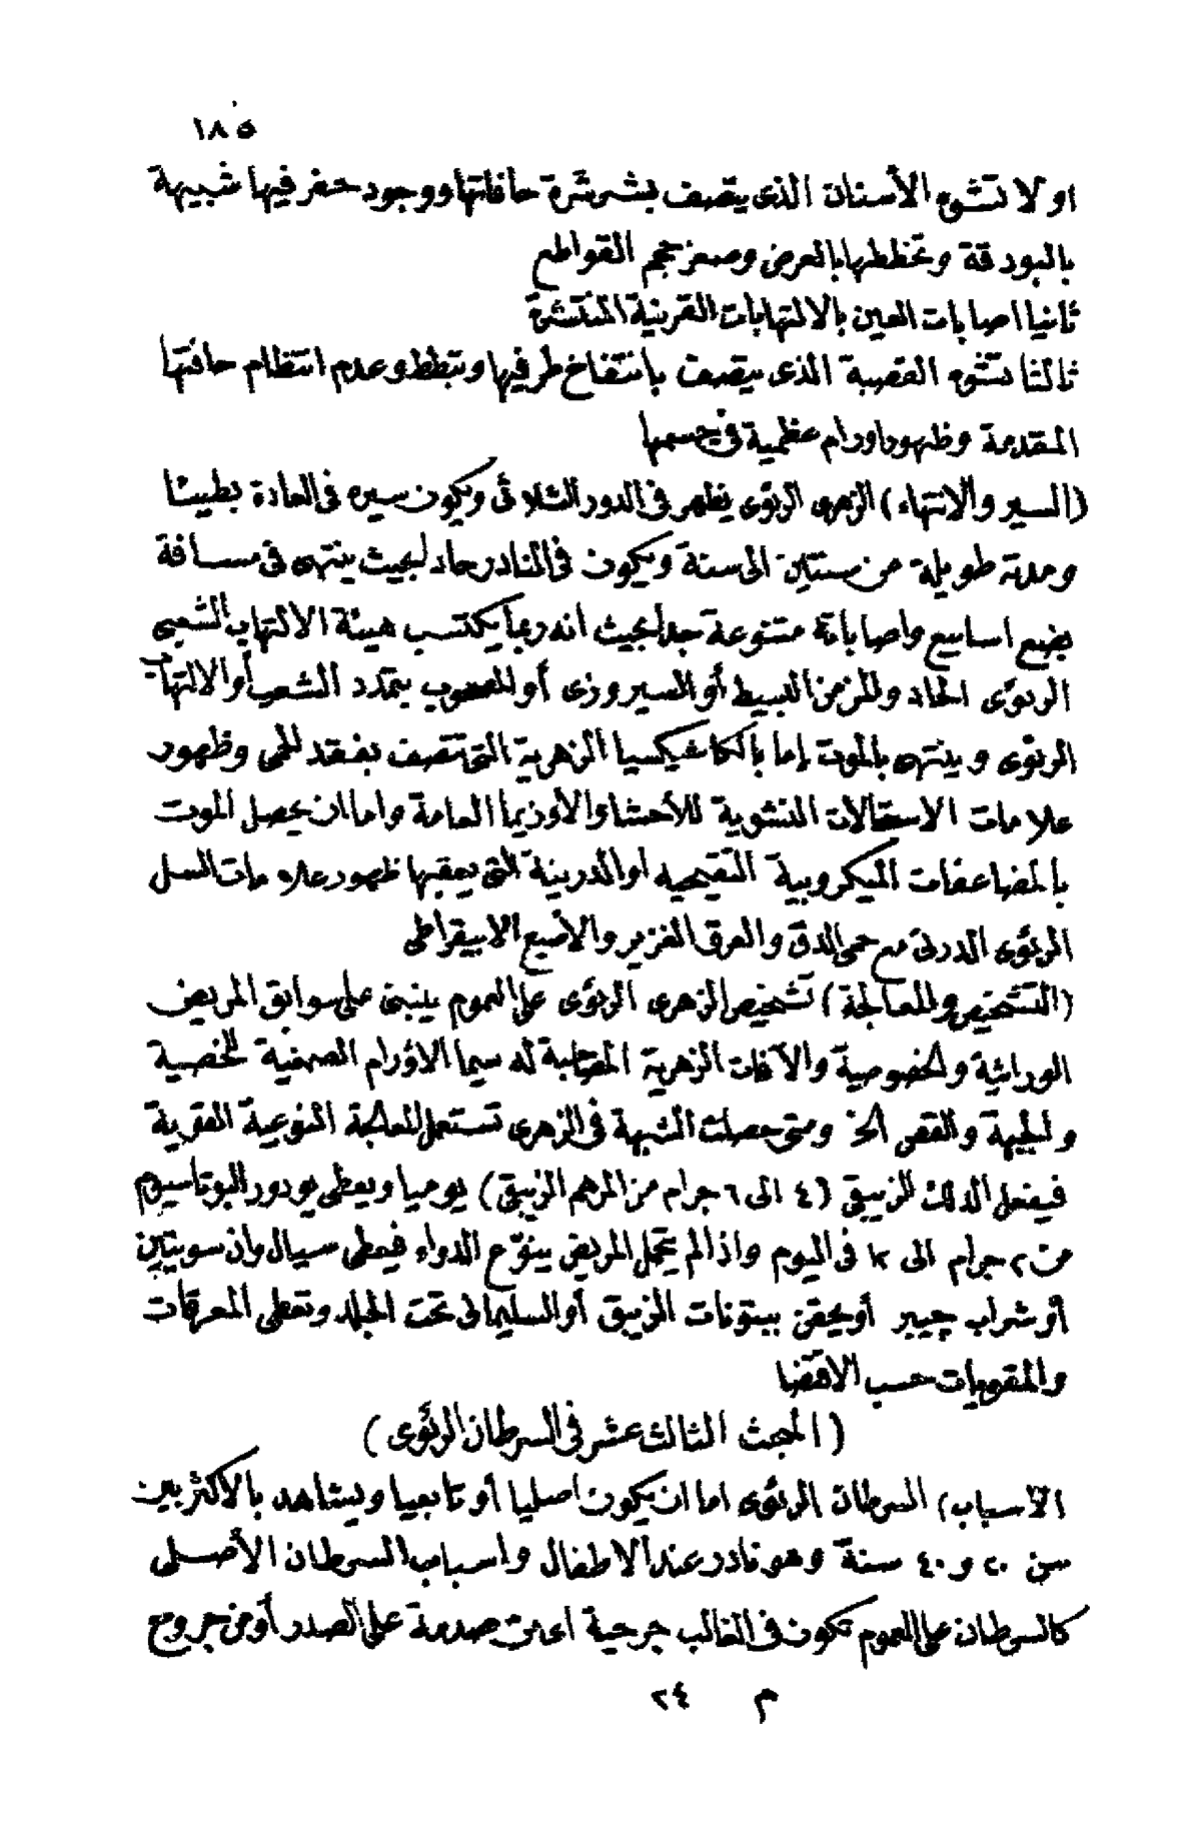 ١٨٥
اولا تشوه الأسنان الذى يتصف بشرشرة حافاتها ووجود حفر فيها شبيهة
بالبودقة وتخططها بالعرض وصغر حجم القواطع
ثانيا اصابات العين بالالتهابات القرنية المنتشرة
ثالثا تشوه القصبة الذى يتصف بانتفاخ طرفيها وتبطط وعدم انتظام حافتها
المقدمة وظهور اورام عظمية فى جسمها
(السير والانتهاء) الزهرى الرئوى يظهر فى الدور الثلاثى ويكون سيره فى العادة بطيئا
ومدته طويلة من سنتين الى سنة ويكون فى النادر حاد بحيث ينتهى فى مسافة
بضع اسابيع واصاباته متنوعة جدا بحيث انه ربما يكتسب هيئة الالتهاب الشعبى
الرئوى الحاد والمزمن البسيط أو السيروزى أو المصحوب بتمدد الشعب أو الالتهاب
الرئوى وينتهى بالموت إما بالكاشيكسيا الزهرية التى تتصف بفقد اللحمى وظهور
علامات الاستحالات النشوية للأحشا والاوزيما العامة واما ان يحصل الموت
بالمضاعفات الميكروبية التقيحيه او الدرينية التى يعقبها ظهور علامات السل
الرئوى الدرنى مع حمى الدق والعرق الغزير والأصبع الابيقراطى
(التشخيص والمعالجة) تشخيص الزهرى الرئوى على العموم ينبنى على سوابق المريض
الوراثية والخصوصية والآفات الزهرية المصاحبة له سيما الاؤرام الصمغية للخصية
والجبهة والقص الخ ومتى حصلت الشبهة فى الزهرى تستعمل المعالجة النوعية القوية
فيفعل الدلك الزيبقى (٤ الى ٦ جرام من المرهم الزيبقى) يوميا ويعطى يودور البوتاسيوم
من ٢ جرام الى ١٢ فى اليوم واذا لم يتحمل المريض ينوّع الدواء فيعطى سيال وان سويتين
أو شراب جيبير أو يحقن ببتونات الزيبق أو السليمانى تحت الجلد وتعطى المعرقات
والمقويات حسب الاقتضا
(المبحث الثالث عشر فى السرطان الرئوى)
الأسباب) السرطان الرئوى اما ان يكون اصليا أو تابعيا ويشاهد بالأكثر بين
سن ٢٠ و ٤٠ سنة وهو نادر عند الاطفال واسباب السرطان الأصلى
كالسرطان على العموم تكون فى الغالب جرحية اى من صدمة على الصدر أو من جروح
م ٢٤